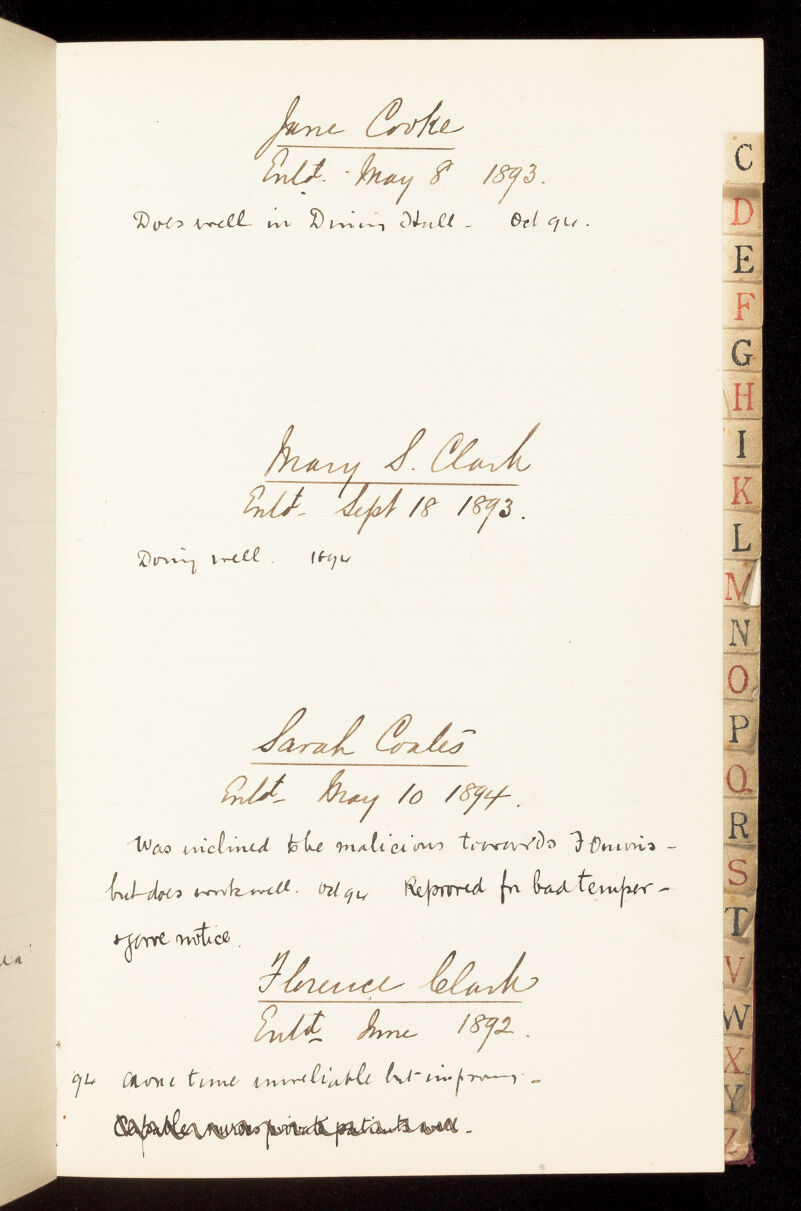 Jane Cooke
Entd. May 8 1893.
Does well in Dining Hall - Oct 94.
Mary S. Clark
Entd- Sept 18 1893.
Doing well. 1894
Sarah Coates
Entd- May 10 1894.
Was inclined to be malicious towards F
but does work well. Oct 94 Reproved for bad temper -
& gave notice.
Florence Clark
Entd- June 1892.
94 At one time unreliable but improving -
Capable nurses private patients well -
C
D
E
F
G
H
I
K
L
M
N
O
P
Q
R
S
T
V
W
X
Y
Z